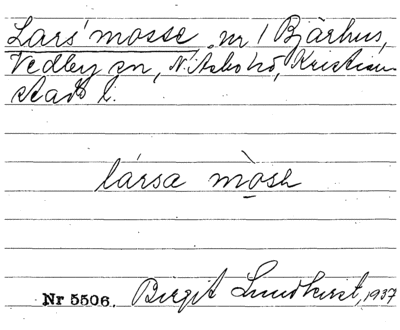 Lars' mosse, nr 1 Bjärhus,
Vedby sn, N. Åsbo hd, Kristian-
stads l.
lársa mòse
Nr 5506. Birgit Lundkvist, 1937